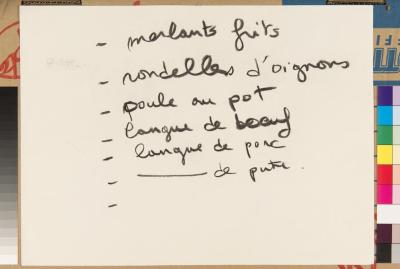 - merlants frits
- rondelles d'oignons
- poule au pot
- langue de boeuf
- langue de porc
- ——— de pute.
-
-